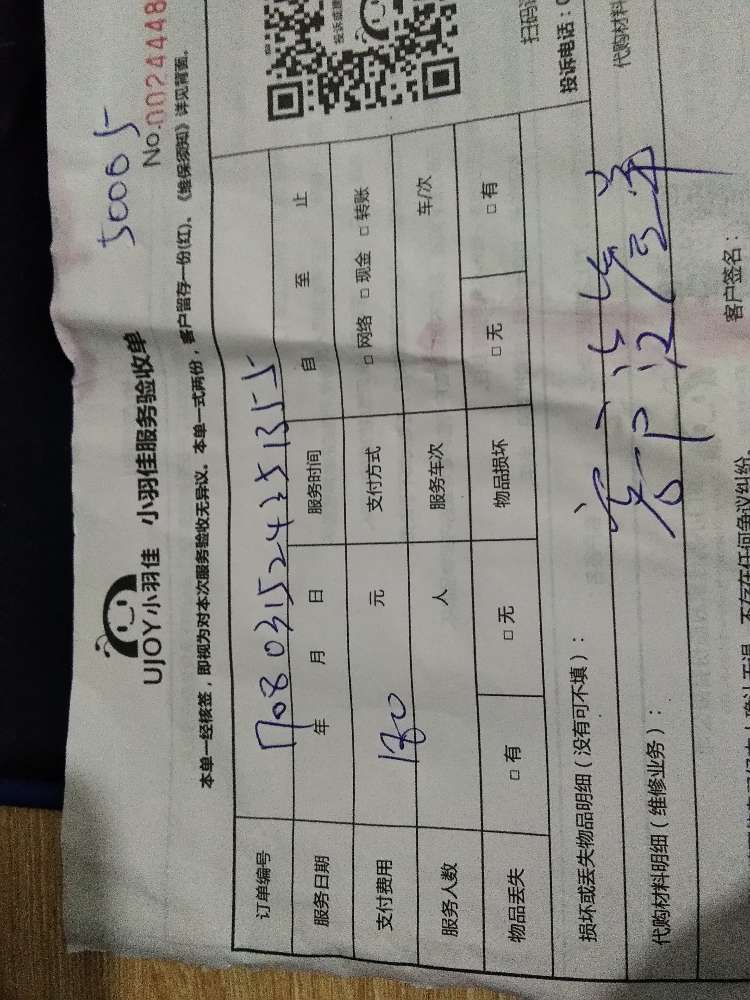 50065
No.0024448
UJOY小羽佳 小羽佳服务验收单
本单一经核签，即视为对本次服务验收无异议。本单一式两份，客户留存一份(红)。《维保须知》详见背面。
订单编号 708031524251355
服务日期 年 月 日 服务时间 自 至 止
支付费用 180 元 支付方式 □ 网络 □ 现金 □ 转账
服务人数 人 服务车次 车/次
物品丢失 □ 有 □ 无 物品损坏 □ 无 □ 有
扫码
投诉电话：
损坏或丢失物品明细（没有可不填）：
代购材料明细（维修业务）： 代购材料
客户没签单
客户签名：
不存在任何争议纠纷。